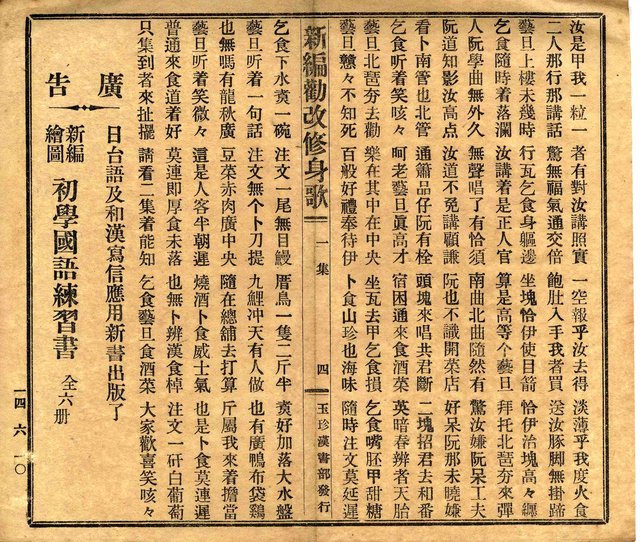 汝是甲我一粒一　者有對汝講照實　一空報乎汝去得　淡薄乎我度火食
二人那行那講話　驚無福氣通交倍　飽肚入手我者買　送汝豚脚無掛蹄
藝旦上樓未幾時　行瓦乞食身軀邊　坐塊恰伊使目箭　恰伊治塊高々纏
乞食隨時着落瀾　汝講着是正人官　算是高等个藝旦　拜托北琶夯來彈
人阮學曲無外久　無聲唱了有恰須　南曲北曲隨然有　驚汝嫌阮呆工夫
阮道知影汝高点　汝道不免講顧謙　阮也不識開菜店　好呆阮那未曉嫌
看卜南管也北管　通簫品仔阮有栓　頭塊來唱共君斷　二塊招君去和番
乞食听着笑咳々　呵老藝旦眞高才　宿困通來食酒菜　英暗春辨者天胎
藝旦北琶夯去勸　樂在其中在中央　坐瓦去甲乞食損　乞食嘴胚甲甜糖
藝旦戇々不知死　百般好禮奉待伊　卜食山珍也海味　隨時注文莫延遲
新編勸改修身歌　一集　四　玉珍漢書部發行
乞食下水煑一碗　注文一尾無目鰻　厝鳥一隻二斤半　煑好加落大水盤
藝旦听着一句話　注文無个卜刀提　九鯉冲天有人做　也有廣鴨布袋鷄
也無嗎有龍秋廣　豆菜赤肉廣中央　隨在總舖去打算　斤屬我來着擔當
藝旦听着笑微々　這是人客半朝遲　燒酒卜食威士氣　也是卜食莫連遲
普通來食道着好　莫連即厚食未落　也無卜辨漢食棹　注文一矸白葡萄
只集到者來扯擺　請看二集着能知　乞食藝旦食酒菜　大家歡喜笑咳々
廣告
日台語及和漢寫信應用新書出版了
新編繪圖　初學國語練習書　全六册
一四、六、一〇